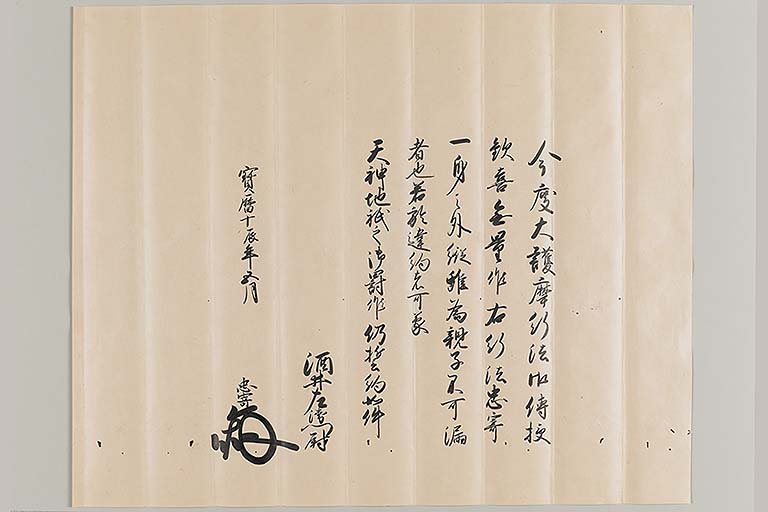 今度大護摩行法御傳授
歓喜無量候右行法忠寄
一身之外縦雖為親子不可漏
者也若於違約者可蒙
天神地祇之御罸候仍誓約如件
酒井左衛門尉
忠寄
寳暦十辰年五月